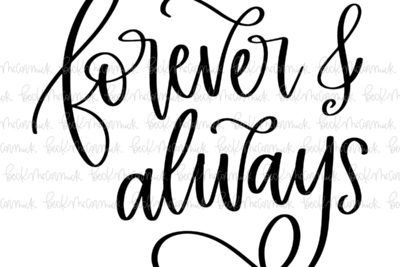 forever &
always